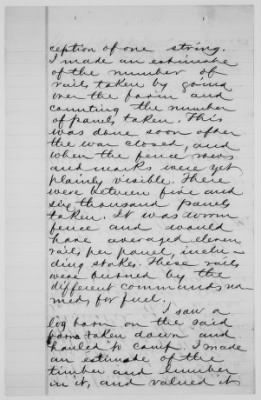 ception of one string.
I made an estimate
of the number of
rails taken by going
over the farm and
counting the number
of panels taken. This
was done soon after
the war closed, and
when the fence rows
and marks were yet
plainly visible. There
were between five and
six thousand panels
taken. It was worm
fence and would
have averaged eleven
rails per panel, inclu-
ding stakes. These rails
were burned by the
different commands na
med, for fuel.
I saw a
log barn on the said
farm taken down and
hauled to camp. I made
an estimate of the
timber and lumber
in it, and valued it